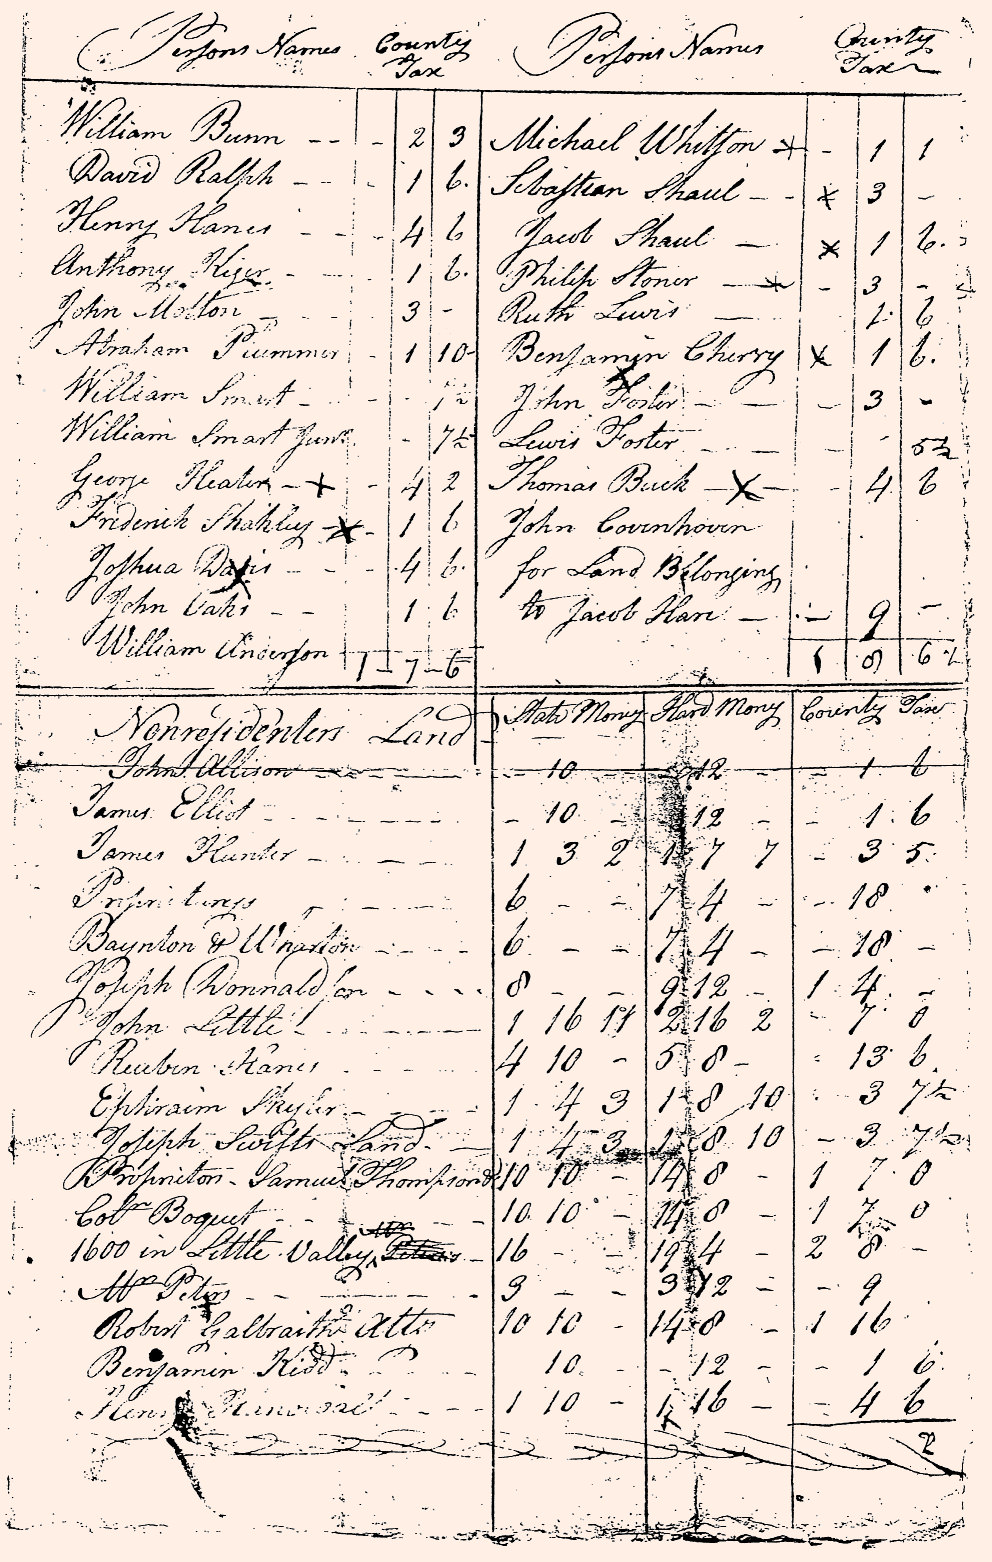 Persons Names County Tax
William Bunn -- - 2 3
David Ralph - - - 1 6.
Henry Hanes - - - 4 6
Anthony Kiger - - 1 6.
John Molton - - 3 -
Abraham Plummer - 1 10-
William Smart - - 7½
William Smart Junr. - 7½
George Heater - x - 4 2
Friderick Shakley - x - 1 6
Joshua Davis - - - 4 6.
John Oaks - - 1 6
William Anderson 1 - 7 - 6
Persons Names County Tax
Michael Whitson x - 1 1
Sebastian Shaul - - x 3 -
Jacob Shaul - x 1 6.
Philip Stoner - x - 3 -
Ruth Lewis - 1 6
Benjamin Cherry x 1 6.
John Foster - - - 3 -
Lewis Foster - - - - 5½
Thomas Buck - x - - 4 6
John Covenhoven
for Land Belonging
to Jacob Hare - - 9 -
1 8 6½
Nonresidenters Land State Money Hard Mony County Tax
John Allison - - - 10 - - 12 - - 1 6
James Elliot - - - - - 10 - 12 - - 1 6
James Hunter - - - 1 3 2 1 7 7 - 3 5
6 - - 7 4 - - 18
Baynton & Wharton - - - 6 - - 7 4 - - 18 -
Joseph Donnaldson - - - - 8 - - 9 12 - 1 4 -
John Little - - - 1 16 11 2 16 2 - 7 0
Reuben Hanes - - - 4 10 - 5 8 - - 13 6
Ephraim - - - 1 4 3 1 8 10 - 3 7½
Joseph Swifts Land - 1 4 3 1 8 10 - 3 7½
Proprietors - Samuel Thompsons 10 10 - 14 8 - 1 7 0
Coln Boquet - - - - 10 10 - 14 8 - 1 7 0
1600 in Little Valley Mr Peters - 16 - - 19 4 - 2 8 -
Mrs Peters - - - - 3 - - 3 12 - - 9
Robert Galbraith Atto 10 10 - 14 8 - 1 16
Benjamin Kidd - - - 10 - - 12 - - 1 6
Henry - - - 1 10 - 1 16 - - 4 6
2